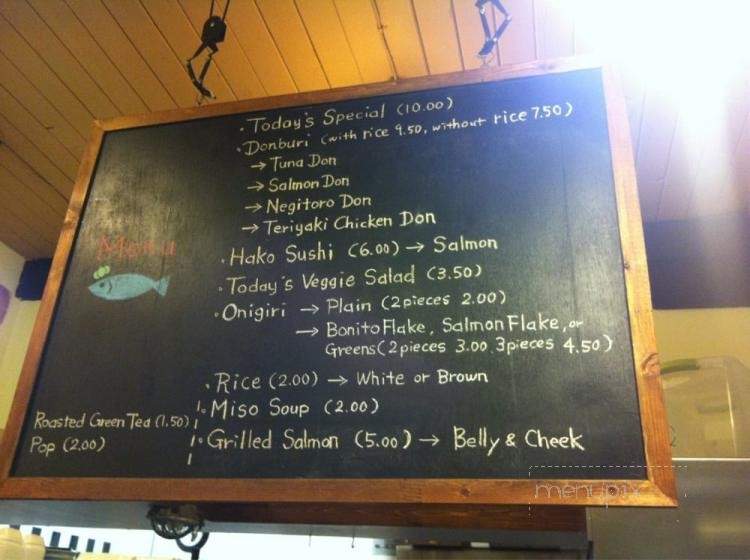 Menu
· Today's Special (10.00)
· Donburi (with rice 9.50, without rice 7.50)
→ Tuna Don
→ Salmon Don
→ Negitoro Don
→ Teriyaki Chicken Don
· Hako Sushi (6.00) → Salmon
· Today's Veggie Salad (3.50)
· Onigiri → Plain (2pieces 2.00)
→ Bonito Flake, Salmon Flake, or
Greens (2pieces 3.00 3pieces 4.50)
· Rice (2.00) → White or Brown
· Miso Soup (2.00)
· Grilled Salmon (5.00) → Belly & Cheek
Roasted Green Tea (1.50)
Pop (2.00)
menupix